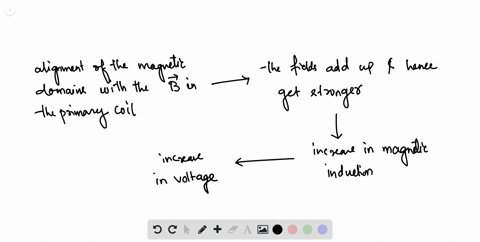 alignment of the magnetic
domains with the B⃗ in
the primary coil
the fields add up & hence
get stronger
increase in magnetic
induction
increase
in voltage